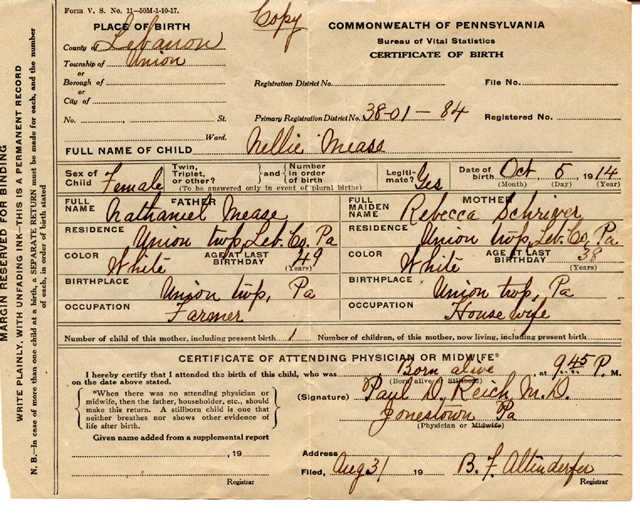 Form V. S. No. 11—50M-1-10-17.
Copy
PLACE OF BIRTH
County of Lebanon
Township of Union
or
Borough of
or
City of
No. St.
Ward.
COMMONWEALTH OF PENNSYLVANIA
Bureau of Vital Statistics
CERTIFICATE OF BIRTH
Registration District No. File No.
Primary Registration District No. 38-01-84 Registered No.
FULL NAME OF CHILD Nellie Mease
Sex of Child Female
Twin, Triplet, or other? and Number in order of birth
(To be answered only in event of plural births)
Legiti-mate? Yes
Date of birth Oct 5 1914
(Month) (Day) (Year)
FATHER
FULL NAME Nathaniel Mease
RESIDENCE Union twp, Leb. Co, Pa
COLOR White AGE AT LAST BIRTHDAY 49 (Years)
BIRTHPLACE Union twp, Pa
OCCUPATION Farmer
MOTHER
FULL MAIDEN NAME Rebecca Schriver
RESIDENCE Union twp, Leb. Co, Pa
COLOR White AGE AT LAST BIRTHDAY 38 (Years)
BIRTHPLACE Union twp, Pa
OCCUPATION House wife
Number of child of this mother, including present birth 1 Number of children, of this mother, now living, including present birth
CERTIFICATE OF ATTENDING PHYSICIAN OR MIDWIFE*
I hereby certify that I attended the birth of this child, who was Born alive at 9 45 P. M.
on the date above stated. (Born alive or Stillborn)
"When there was no attending physician or midwife, then the father, householder, etc., should make this return. A stillborn child is one that neither breathes nor shows other evidence of life after birth.
(Signature) Paul D. Reich M.D.
Jonestown Pa
(Physician or Midwife)
Given name added from a supplemental report
, 19
Registrar
Address
Filed, Aug 31 19
Registrar
MARGIN RESERVED FOR BINDING
WRITE PLAINLY, WITH UNFADING INK—THIS IS A PERMANENT RECORD
N. B.—In case of more than one child at a birth, a SEPARATE RETURN must be made for each, and the number
of each, in order of birth stated